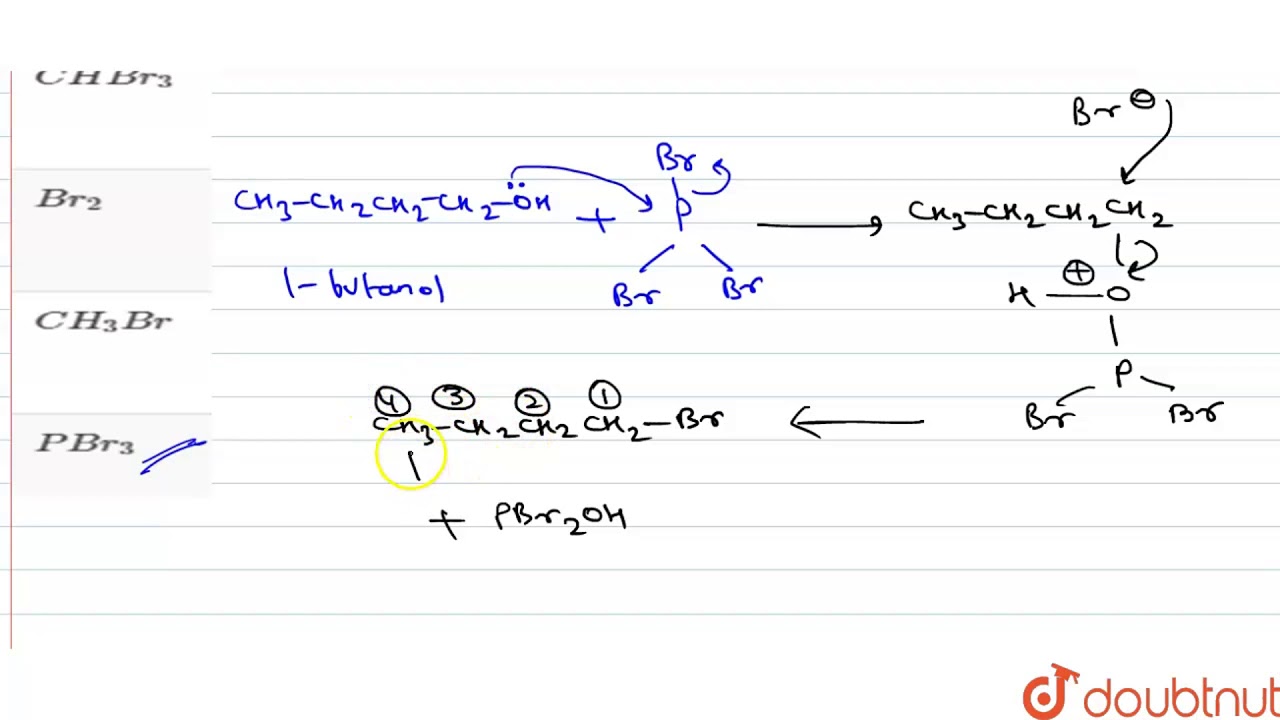 CHBr3
Br2
CH3Br
PBr3
CH3-CH2CH2-CH2-ÖH + Br
P
Br Br
1-butanol
Br ⊖
CH3-CH2CH2CH2
⊕
H — O
P
Br Br
④ ③ ② ①
CH3-CH2CH2CH2-Br
+ PBr2OH
doubtnut